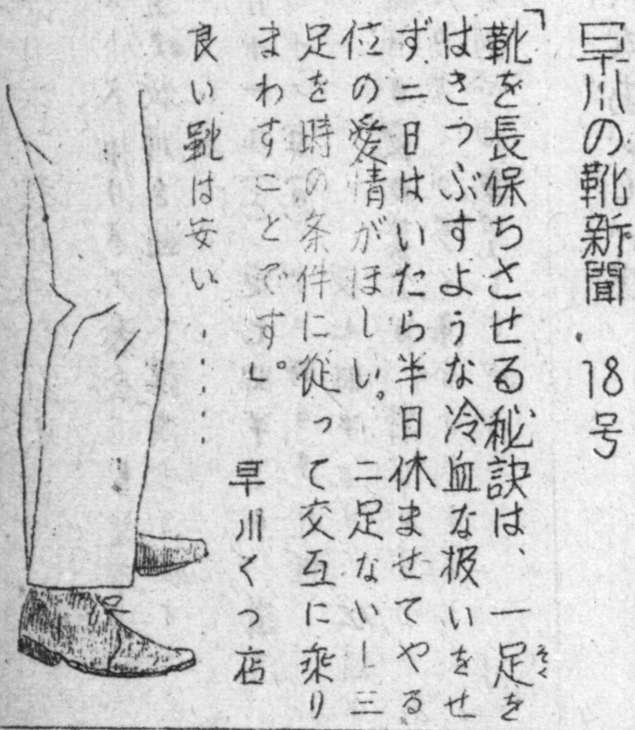 早川の靴新聞 18号
「靴を長保ちさせる秘訣は、一足を
はきつぶすような冷血な扱いをせ
ず、二日はいたら半日休ませてやる
位の愛情がほしい。二足ないし三
足を時の条件に従って交互に乗り
まわすことです」。
早川くつ店
良い靴は安い……